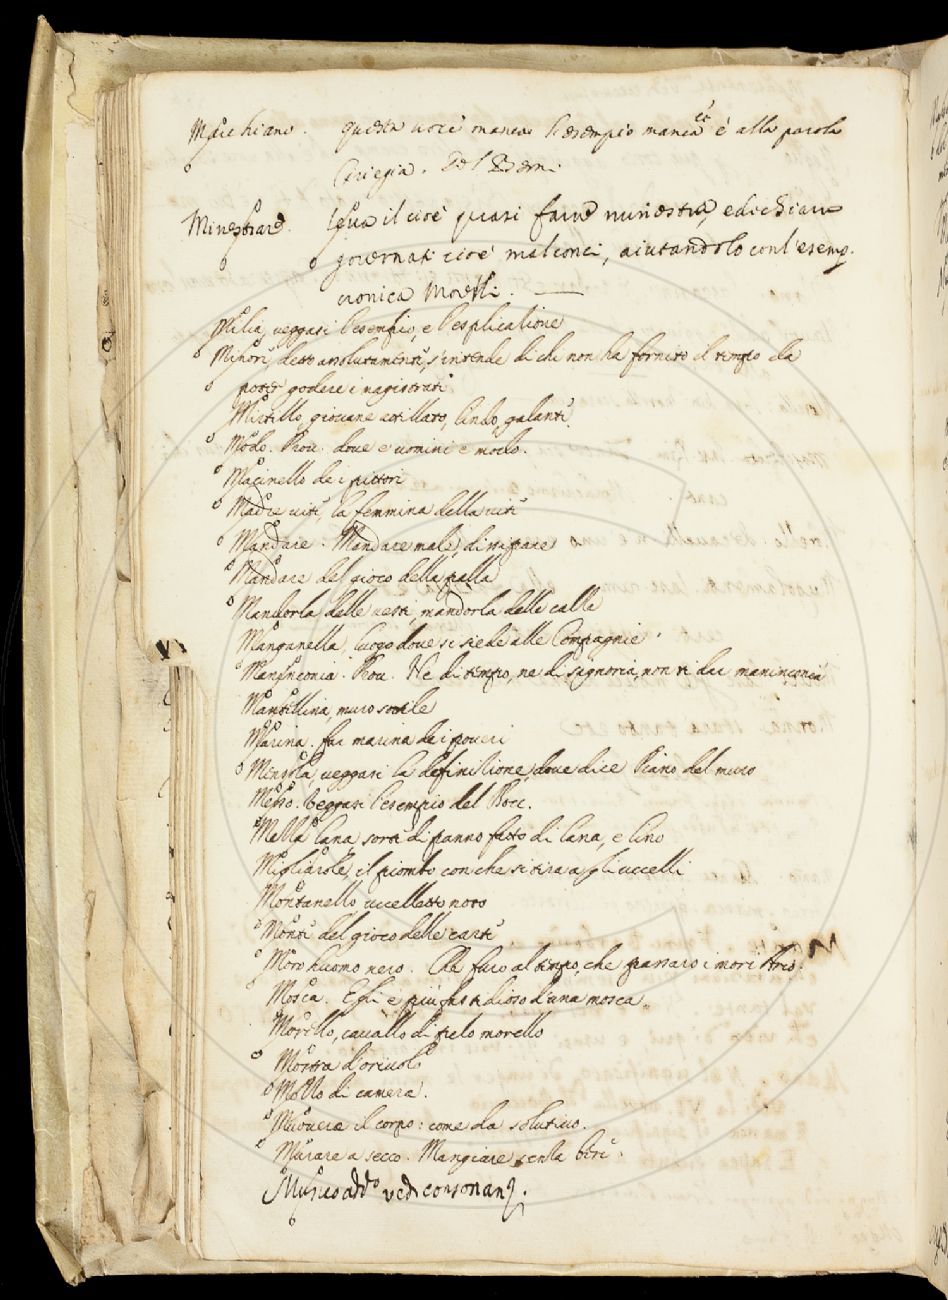 Marchiano. questa voce manca l'esempio manca è alla parola
Ciriegia. Del Berni
Minestrare. qua il cioè quasi farne minestra, e dichiara
governati cioè malconci, aiutandolo con l'esemp.
cronica Morelli.
Milia, veggasi l'esempio, e l'esplicatione
Minori, detto assolutamente, s'intende di chi non ha fornito il tempo da
poter godere i magistrati
Mirtillo, giovane attillato, lindo, galante
Modo. Prov. dove è uomini è modo.
Macinello de i pittori
Madre vite, la femmina della vite
Mandare. Mandare male, dissipare
Mandare del gioco della palla
Mandorla delle vesti, mandorla delle calle
Manganella, luogo dove si siede alle Compagnie
Maninconia. Prov. Ne di tempo, ne di signoria, non ti dar maninconia
Mantellina, muro sottile
Marina. far marina de i poveri
Mensola, veggasi la definitione, dove dice Piano del muro
Messo. Veggasi l'esempio del Bocc.
Mezza lana, sorte di panno fatto di lana, e lino
Migliarole, il piombo con che si tira a gli uccelli
Montanello, uccelletto noto
Monte del gioco delle carte
Moro huomo nero. Che furo al tempo, che passaro i mori
Mosca. Egli è più fastidioso d'una mosca.
Morello, cavallo di pelo morello
Mostra d'orivolo
Motto di camera.
Muovere il corpo: come da solutivo.
Murare a secco. Mangiare senza bere.
vedi consonanz.